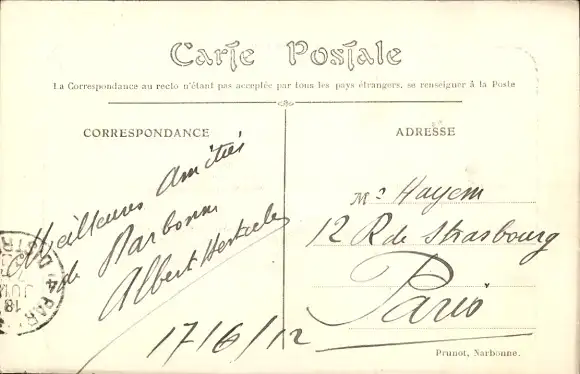 Carte Postale
La Correspondance au recto n'étant pas acceptée par tous les pays étrangers, se renseigner à la Poste
CORRESPONDANCE
Meilleures amitiés
de Narbonne
Albert
17/6/12
ADRESSE
Mr Hayem
12 R de Strasbourg
Paris
Prunot, Narbonne.
PARIS
18
JUIN
DISTRI